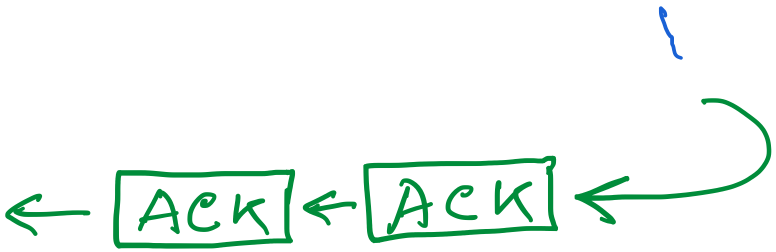 ACK ACK